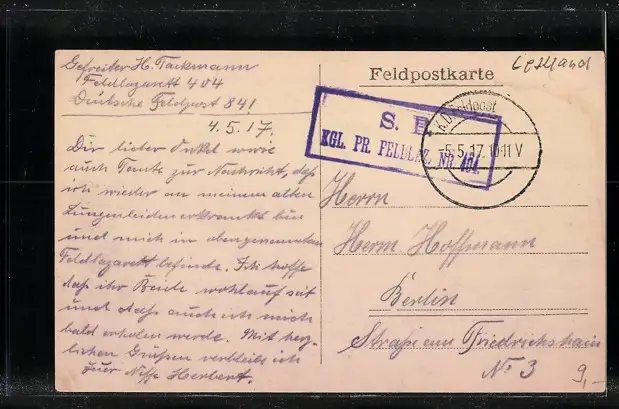 Gefreiter H. Tackmann
Feldlazarett 404
Deutsche Feldpost 841
4.5.17.
Dir lieber Onkel sowie
auch Tante zur Nachricht, daß
ich wieder an meinem alten
Lungenleiden erkrankt bin
und mich in obengenannten
Feldlazarett befinde. Ich hoffe
daß ihr Beide wohlauf seit
und daß auch ich mich
bald erholen werde. Mit herz-
lichen Grüßen verbleibe ich
euer Neffe Herbert.
Lettland
Feldpostkarte
S. B.
KGL. PR. FELDLAZ. NR. 404.
K.D. Feldpost
-5.5.17. 10-11 V
Herrn
Herm. Hoffmann
Berlin
Straße am Friedrichshain
No 3
9,-